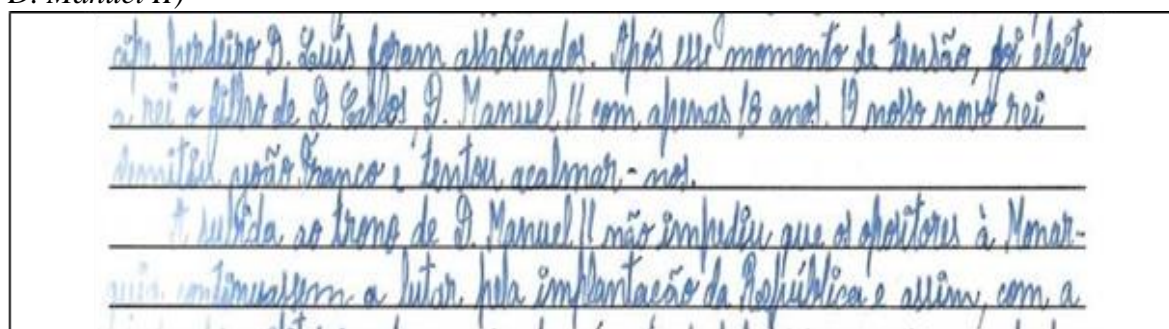 D. Manuel II)
cipe herdeiro D. Luís foram assassinados. Após esse momento de tensão, foi eleito
a rei o filho de D. Carlos D. Manuel II com apenas 18 anos. O nosso novo rei
demitiu João Franco e tentou acalmar-nos.
A subida ao trono de D. Manuel II não impediu que os opositores à Monar-
quia continuassem a lutar pela implantação da República e assim, com a